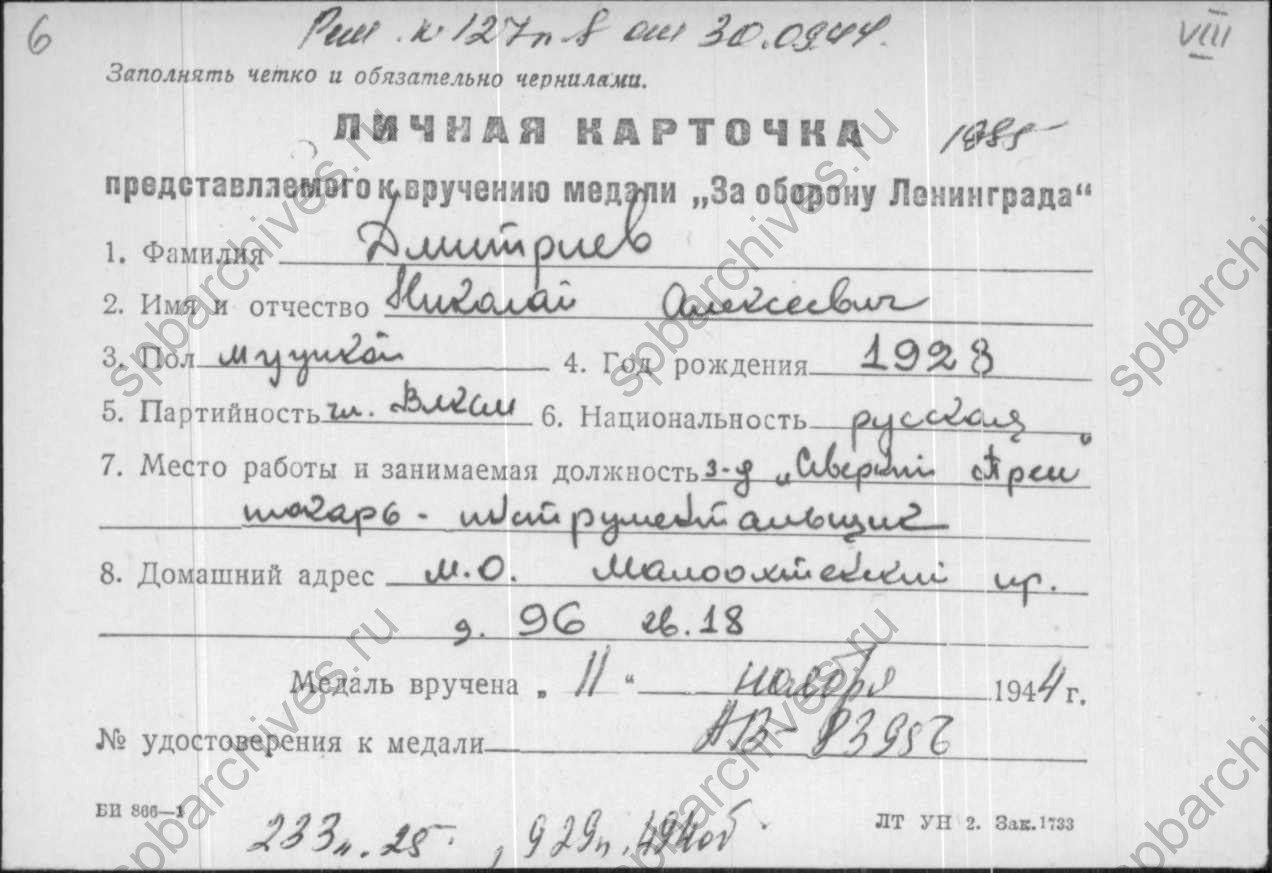 6 Реш. № 127п.8 от 30.09.44. VIII
Заполнять четко и обязательно чернилами.
ЛИЧНАЯ КАРТОЧКА
представляемого к вручению медали „За оборону Ленинграда“
1. Фамилия Дмитриев
2. Имя и отчество Николай Алексеевич
3. Пол мужской 4. Год рождения 1928
5. Партийность чл. ВЛКСМ 6. Национальность русская
7. Место работы и занимаемая должность з-д „Северный Пресс“
токарь - инструментальщик
8. Домашний адрес М.О. Малоохтенский пр.
д. 96 кв. 18
Медаль вручена „ 11 “ ноября 1944 г.
№ удостоверения к медали АВ-93956
БИ 866—1
ЛТ УН 2. Зак. 1733
233п. 25
spbarchives.ru